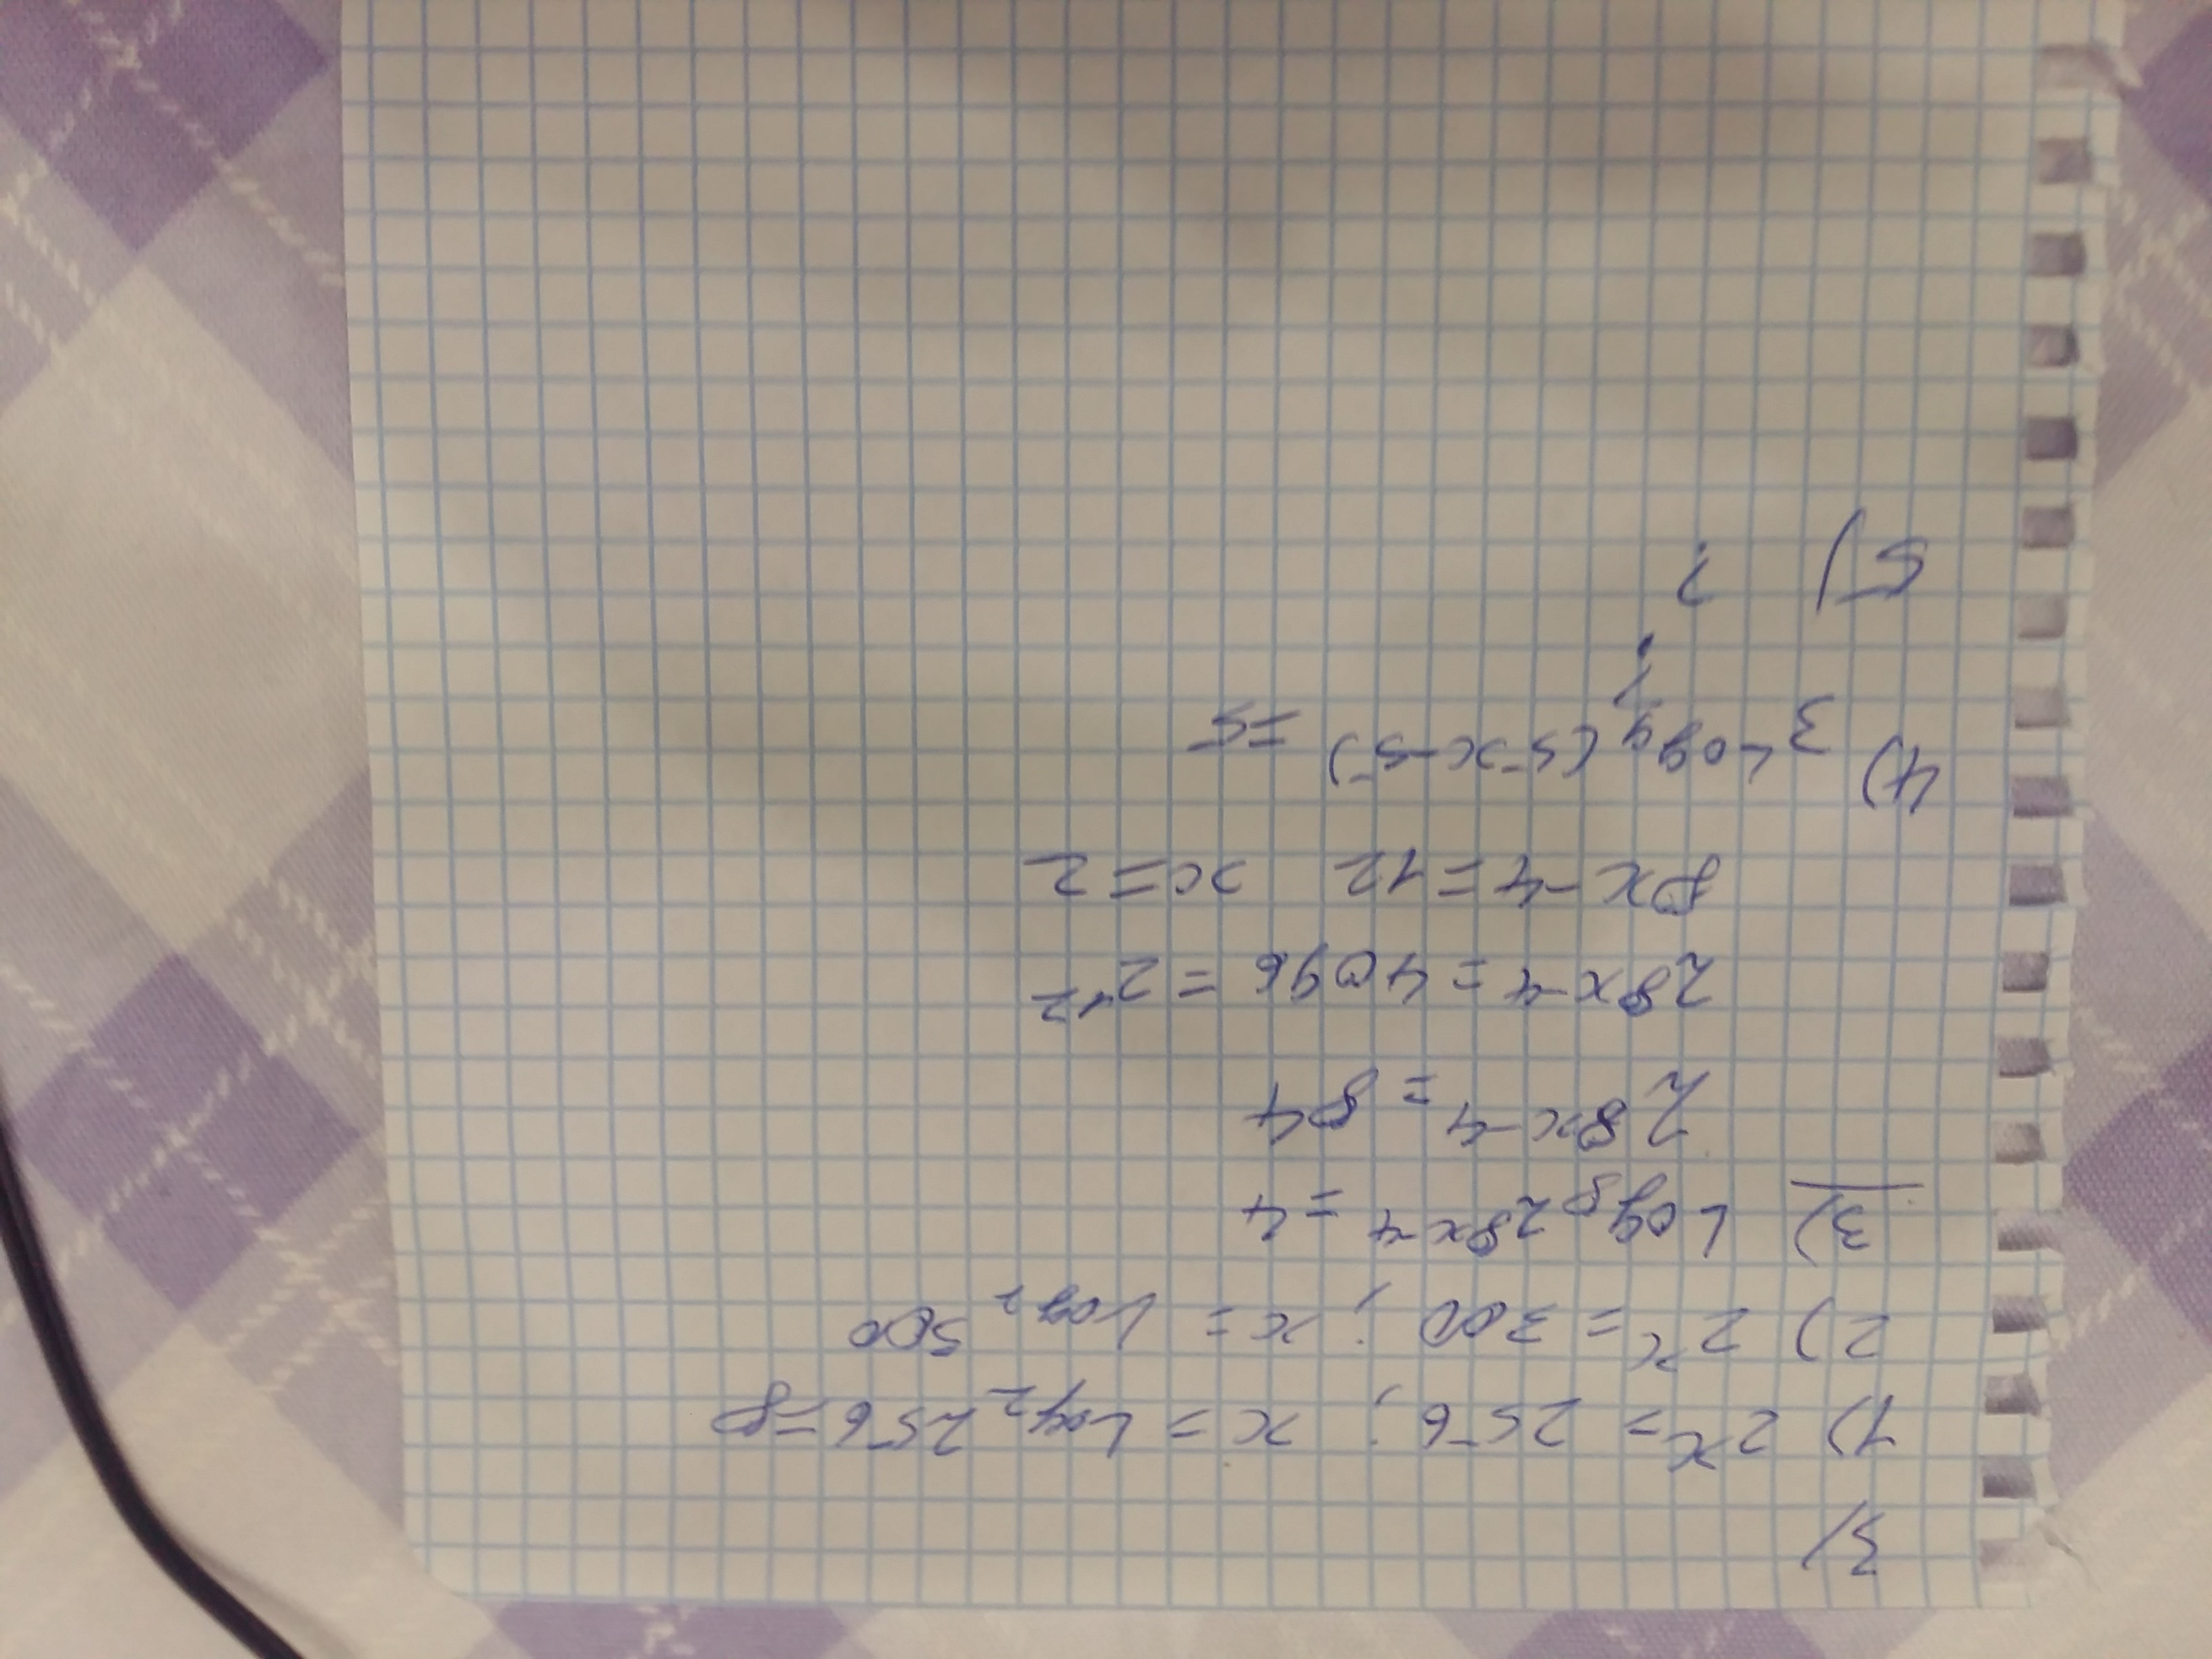 3)
1) 2^x = 256; x = Log₂ 256 = 8
2) 2^x = 300; x = Log₂ 500
3) Log₈ 2^(8x-4) = 4
2^(8x-4) = 8^4
2^(8x-4) = 4096 = 2^12
8x-4 = 12 x = 2
4) 3^(Log₉ (5x-5)) = 5
?
5) ?